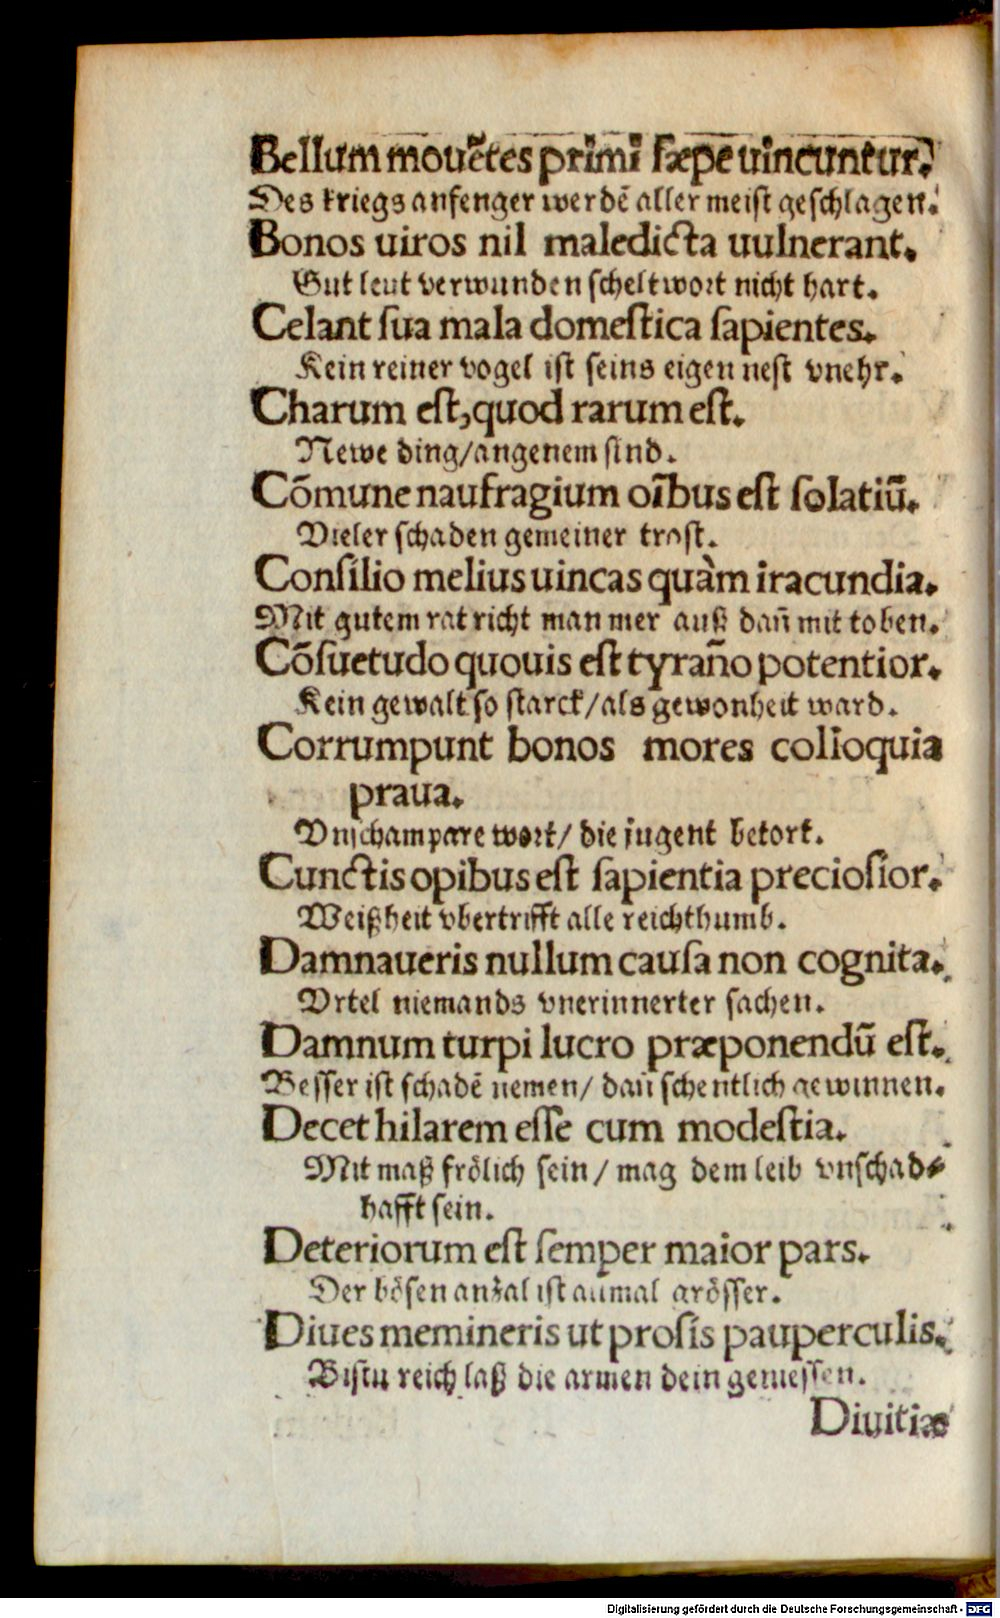 Bellum mouẽtes primi sæpe uincuntur.
Des kriegs anfenger werdẽ aller meist geschlagen.
Bonos uiros nil maledicta uulnerant.
Gut leut verwunden scheltwort nicht hart.
Celant sua mala domestica sapientes.
Kein reiner vogel ist seins eigen nest vnehr.
Charum est, quod rarum est.
Newe ding/angenem sind.
Cõmune naufragium oĩbus est solatiũ.
Vieler schaden gemeiner trost.
Consilio melius uincas quàm iracundia.
Mit gutem rat richt man mer auß dañ mit toben.
Cõsuetudo quouis est tyrañno potentior.
Kein gewalt so starck/als gewonheit ward.
Corrumpunt bonos mores colloquia
praua.
Vnschampare wort/ die jugent betort.
Cunctis opibus est sapientia preciosior.
Weißheit vbertrifft alle reichthumb.
Damnaueris nullum causa non cognita.
Vrtel niemands vnerinnerter sachen.
Damnum turpi lucro præponendũ est.
Besser ist schadẽ nemen/ dañ schentlich gewinnen.
Decet hilarem esse cum modestia.
Mit maß frölich sein/ mag dem leib vnschad⸗
hafft sein.
Deteriorum est semper maior pars.
Der bösen anzal ist allmal grösser.
Diues memineris ut prosis pauperculis.
Bistu reich laß die armen dein geniessen.
Diuitiæ
Digitalisierung gefördert durch die Deutsche Forschungsgemeinschaft - DFG